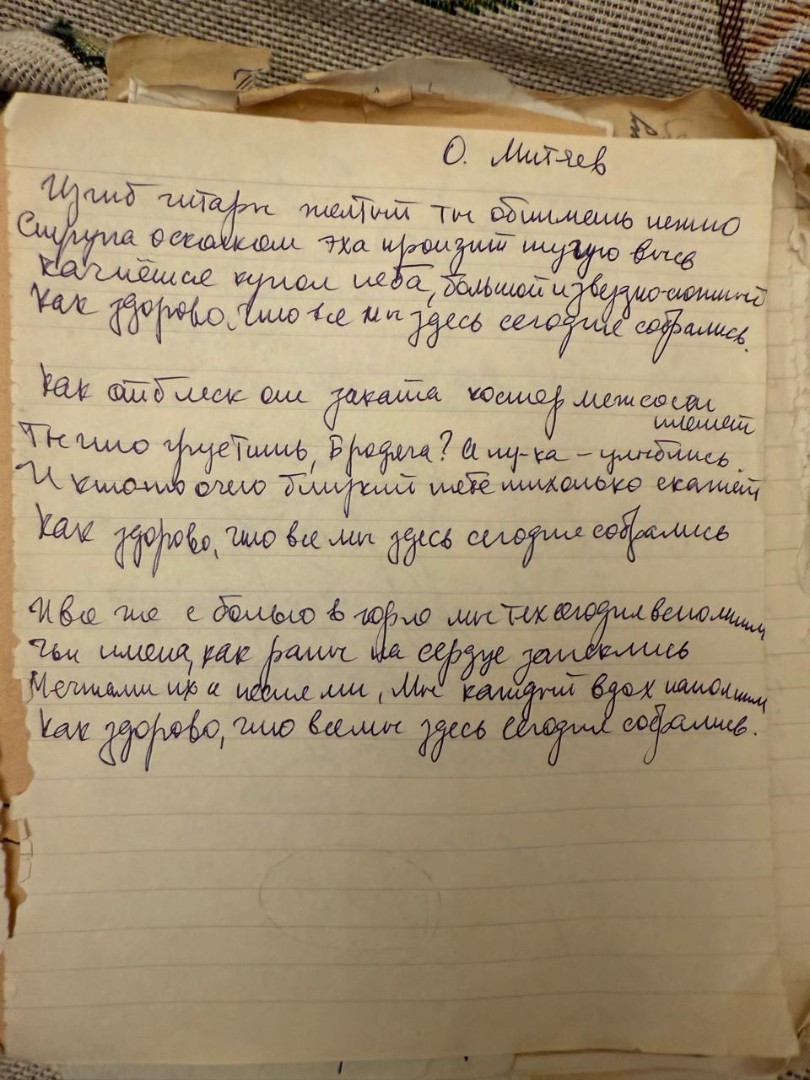 О. Митяев
Изгиб гитары желтый ты обнимешь нежно
Струна осколком эха пронзит тугую высь
Качнётся купол неба, большой и звездно-снежный
Как здорово, что все мы здесь сегодня собрались.
Как отблеск от заката костер меж сосен
пляшет
Ты что грустишь, Бродяга? А ну-ка – улыбнись.
И кто-то очень близкий тебе тихонько скажет
Как здорово, что все мы здесь сегодня собрались
И все же с болью в горле мы тех сегодня вспомним
Чьи имена, как раны на сердце запеклись
Мечтами их и песнями, Мы каждый вдох наполним
Как здорово, что все мы здесь сегодня собрались.